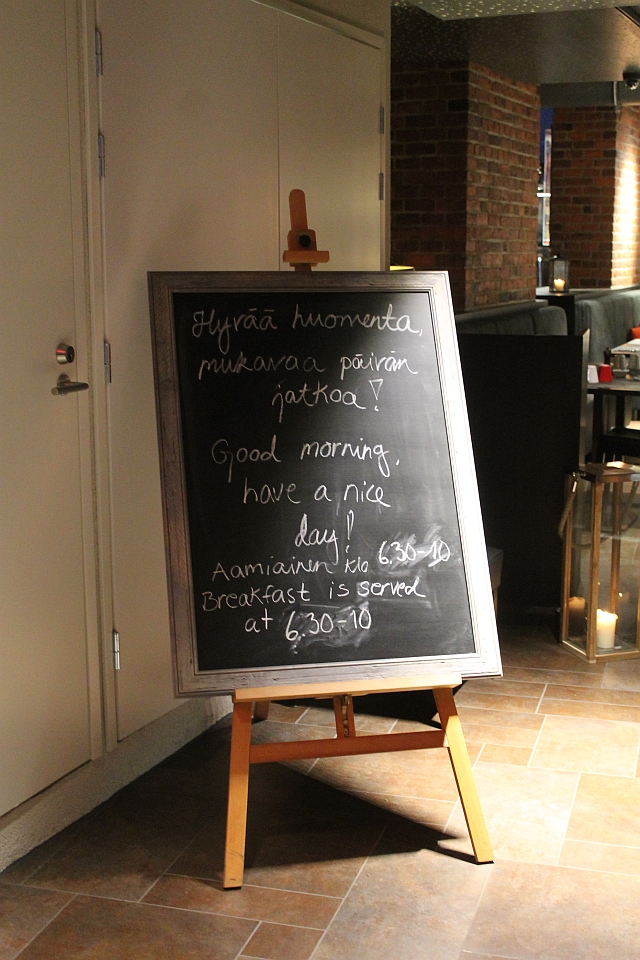 Hyvää huomenta,
mukavaa päivän
jatkoa!
Good morning,
have a nice
day!
Aamiainen klo 6.30-10
Breakfast is served
at 6.30-10